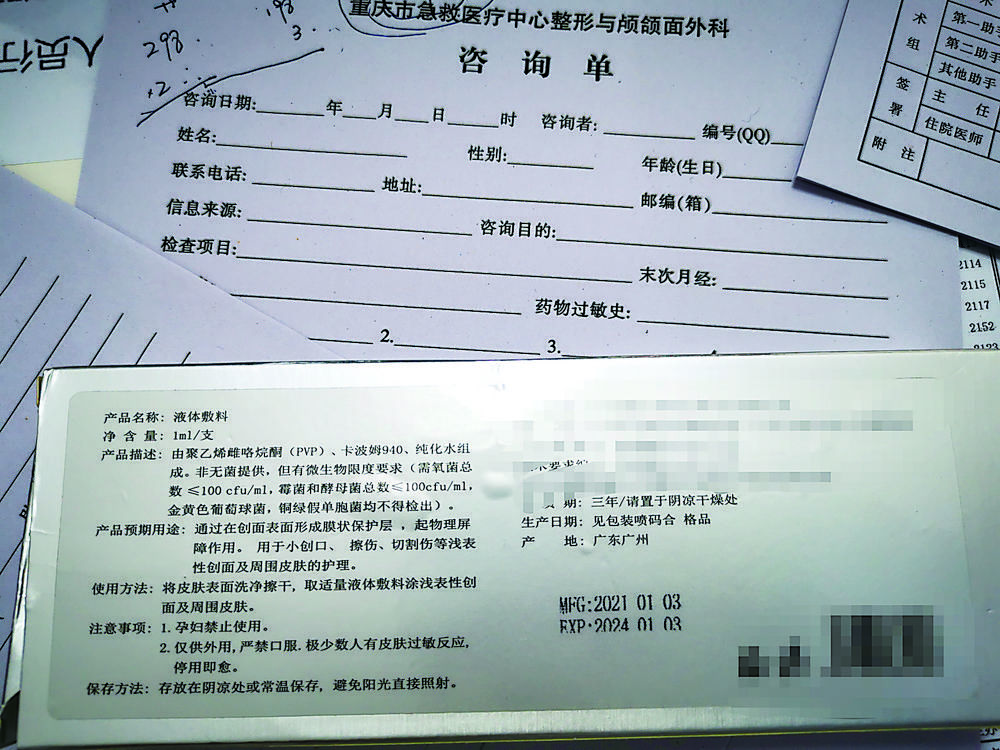 人员行
298
198
3
+2
重庆市急救医疗中心整形与颅颌面外科
咨询单
咨询日期:____年___月___日____时 咨询者:________ 编号(QQ)
姓名: 性别: 年龄(生日)
联系电话: 地址: 邮编(箱)
信息来源: 咨询目的:
检查项目: 末次月经:
药物过敏史:
2. 3.
术
组
第一助手
第二助手
其他助手
签
署
主 任
住院医师
附 注
2114
2115
2117
2152
产品名称: 液体敷料
净 含 量: 1ml/支
产品描述: 由聚乙烯雌咯烷酮(PVP)、卡波姆940、纯化水组
成。非无菌提供, 但有微生物限度要求(需氧菌总
数≤100 cfu/ml, 霉菌和酵母菌总数≤100cfu/ml,
金黄色葡萄球菌, 铜绿假单胞菌均不得检出)。
产品预期用途: 通过在创面表面形成膜状保护层 , 起物理屏
障作用。 用于小创口、 擦伤、切割伤等浅表
性创面及周围皮肤的护理。
使用方法: 将皮肤表面洗净擦干, 取适量液体敷料涂浅表性创
面及周围皮肤。
注意事项: 1. 孕妇禁止使用。
2. 仅供外用, 严禁口服. 极少数人有皮肤过敏反应,
停用即愈。
保存方法: 存放在阴凉处或常温保存, 避免阳光直接照射。
期: 三年/请置于阴凉干燥处
生产日期: 见包装喷码合 格品
产 地: 广东广州
MFG:2021 01 03
EXP:2024 01 03